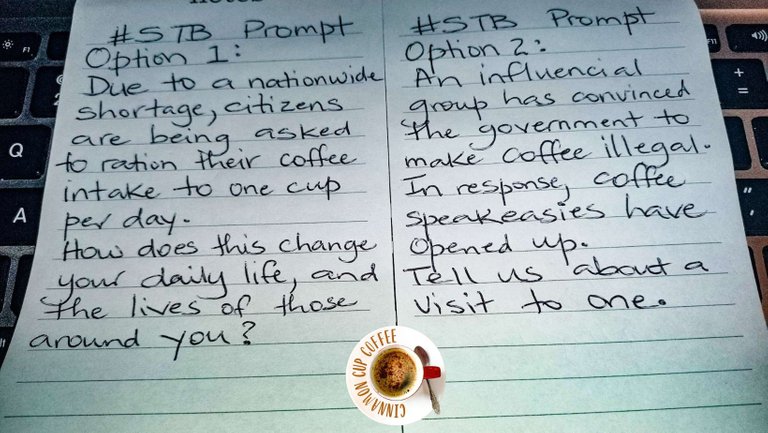 notes
#STB Prompt
Option 1:
Due to a nationwide
shortage, citizens
are being asked
to ration their coffee
intake to one cup
per day.
How does this change
your daily life, and
the lives of those
around you?
#STB Prompt
Option 2:
An influencial
group has convinced
the government to
make coffee illegal.
In response, coffee
speakeasies have
opened up.
Tell us about a
visit to one.
CINNAMON CUP COFFEE
F1
Q
A
+
=
F11
F12
"
'